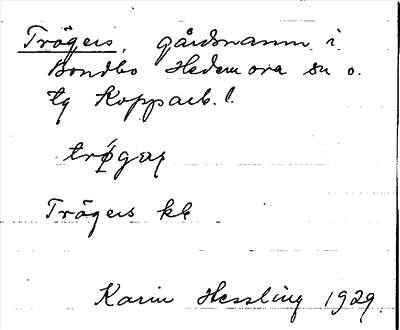 Trögers, gårdsnamn i
Bondbo Hedemora sn o.
tg Kopparb. l.
Trögers kb
Karin Hessling 1929.